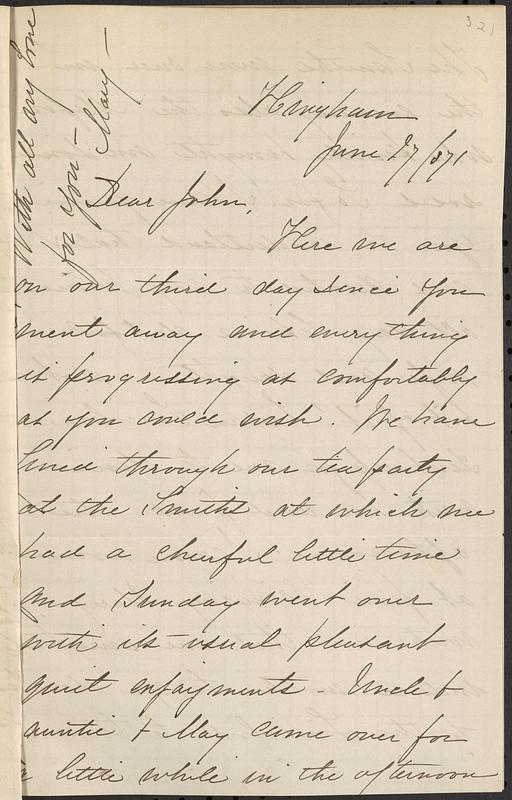 321
With all my love
for you - Mary -
Hingham
June 27/871
Dear John,
Here we are
on our third day since you
went away and everything
is progressing as comfortably
as you could wish. We have
lived through our tea party
at the Smiths at which we
had a cheerful little time
and Sunday went over
with its usual pleasant
quiet enjoyments - Uncle &
auntie & May came over for
a little while in the afternoon